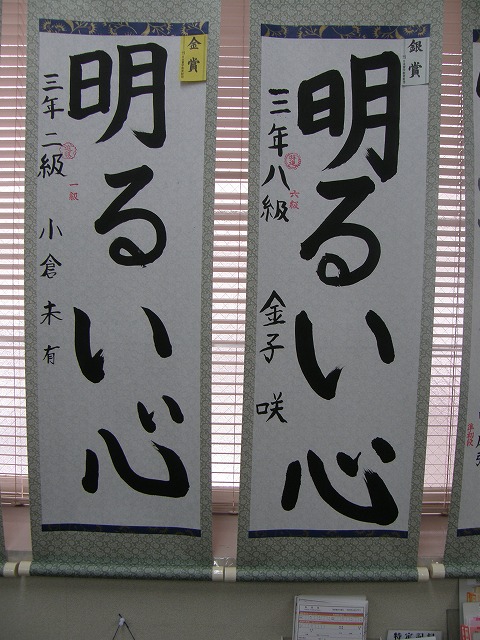 銀賞
明るい心
三年八級
六級
金子咲
金賞
明るい心
三年二級
一級
小倉未有
準初段
特定記録